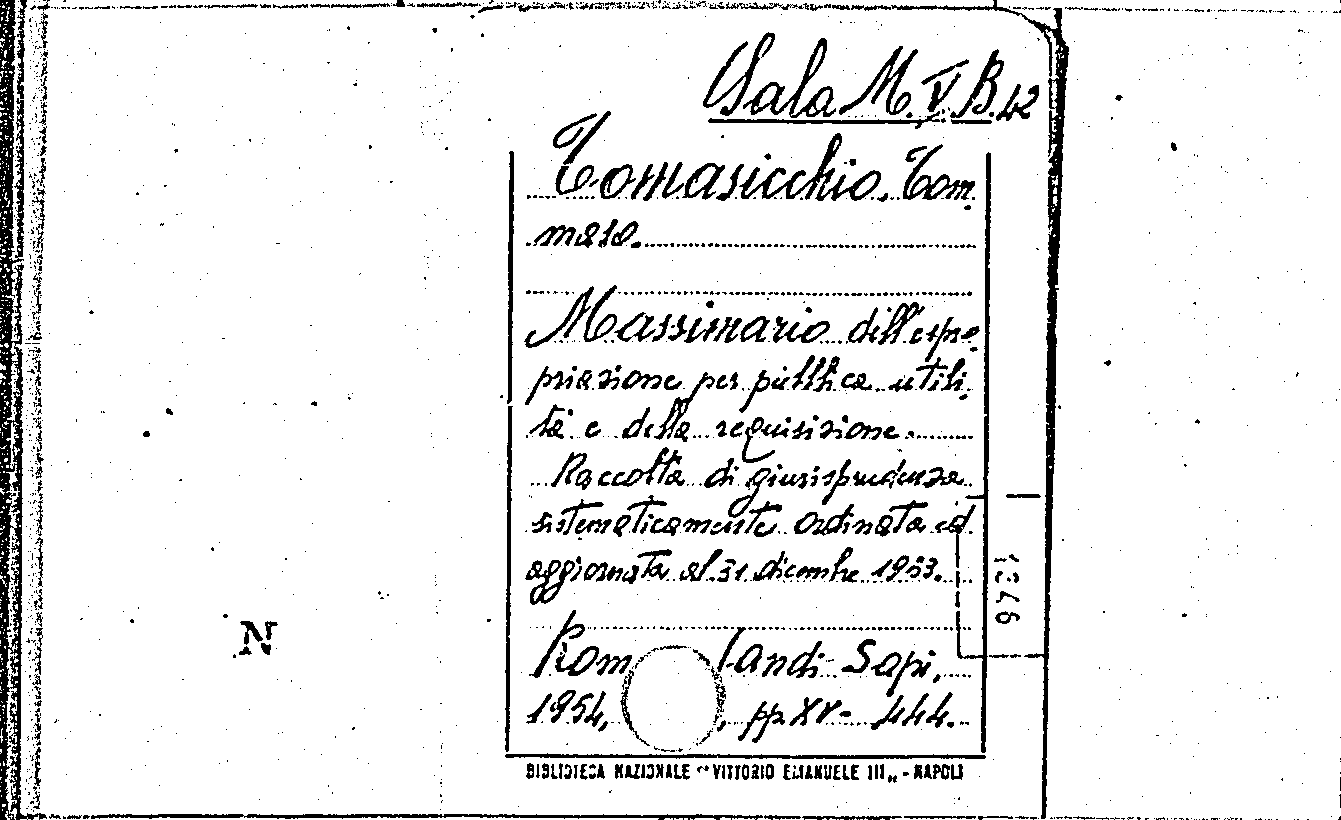 Sala M. V. B. 42
Tomasicchio, Tom-
maso.
Massimario dell'espro-
priazione per pubblica utili-
tà e della requisizione.
Raccolta di giurisprudenza
sistematicamente ordinata ed
aggiornata al 31 dicembre 1953.
1346
N
Rom landi Sapi,
1954, , pp. XV - 444.
BIBLIOTECA NAZIONALE "VITTORIO EMANUELE III„ - NAPOLI